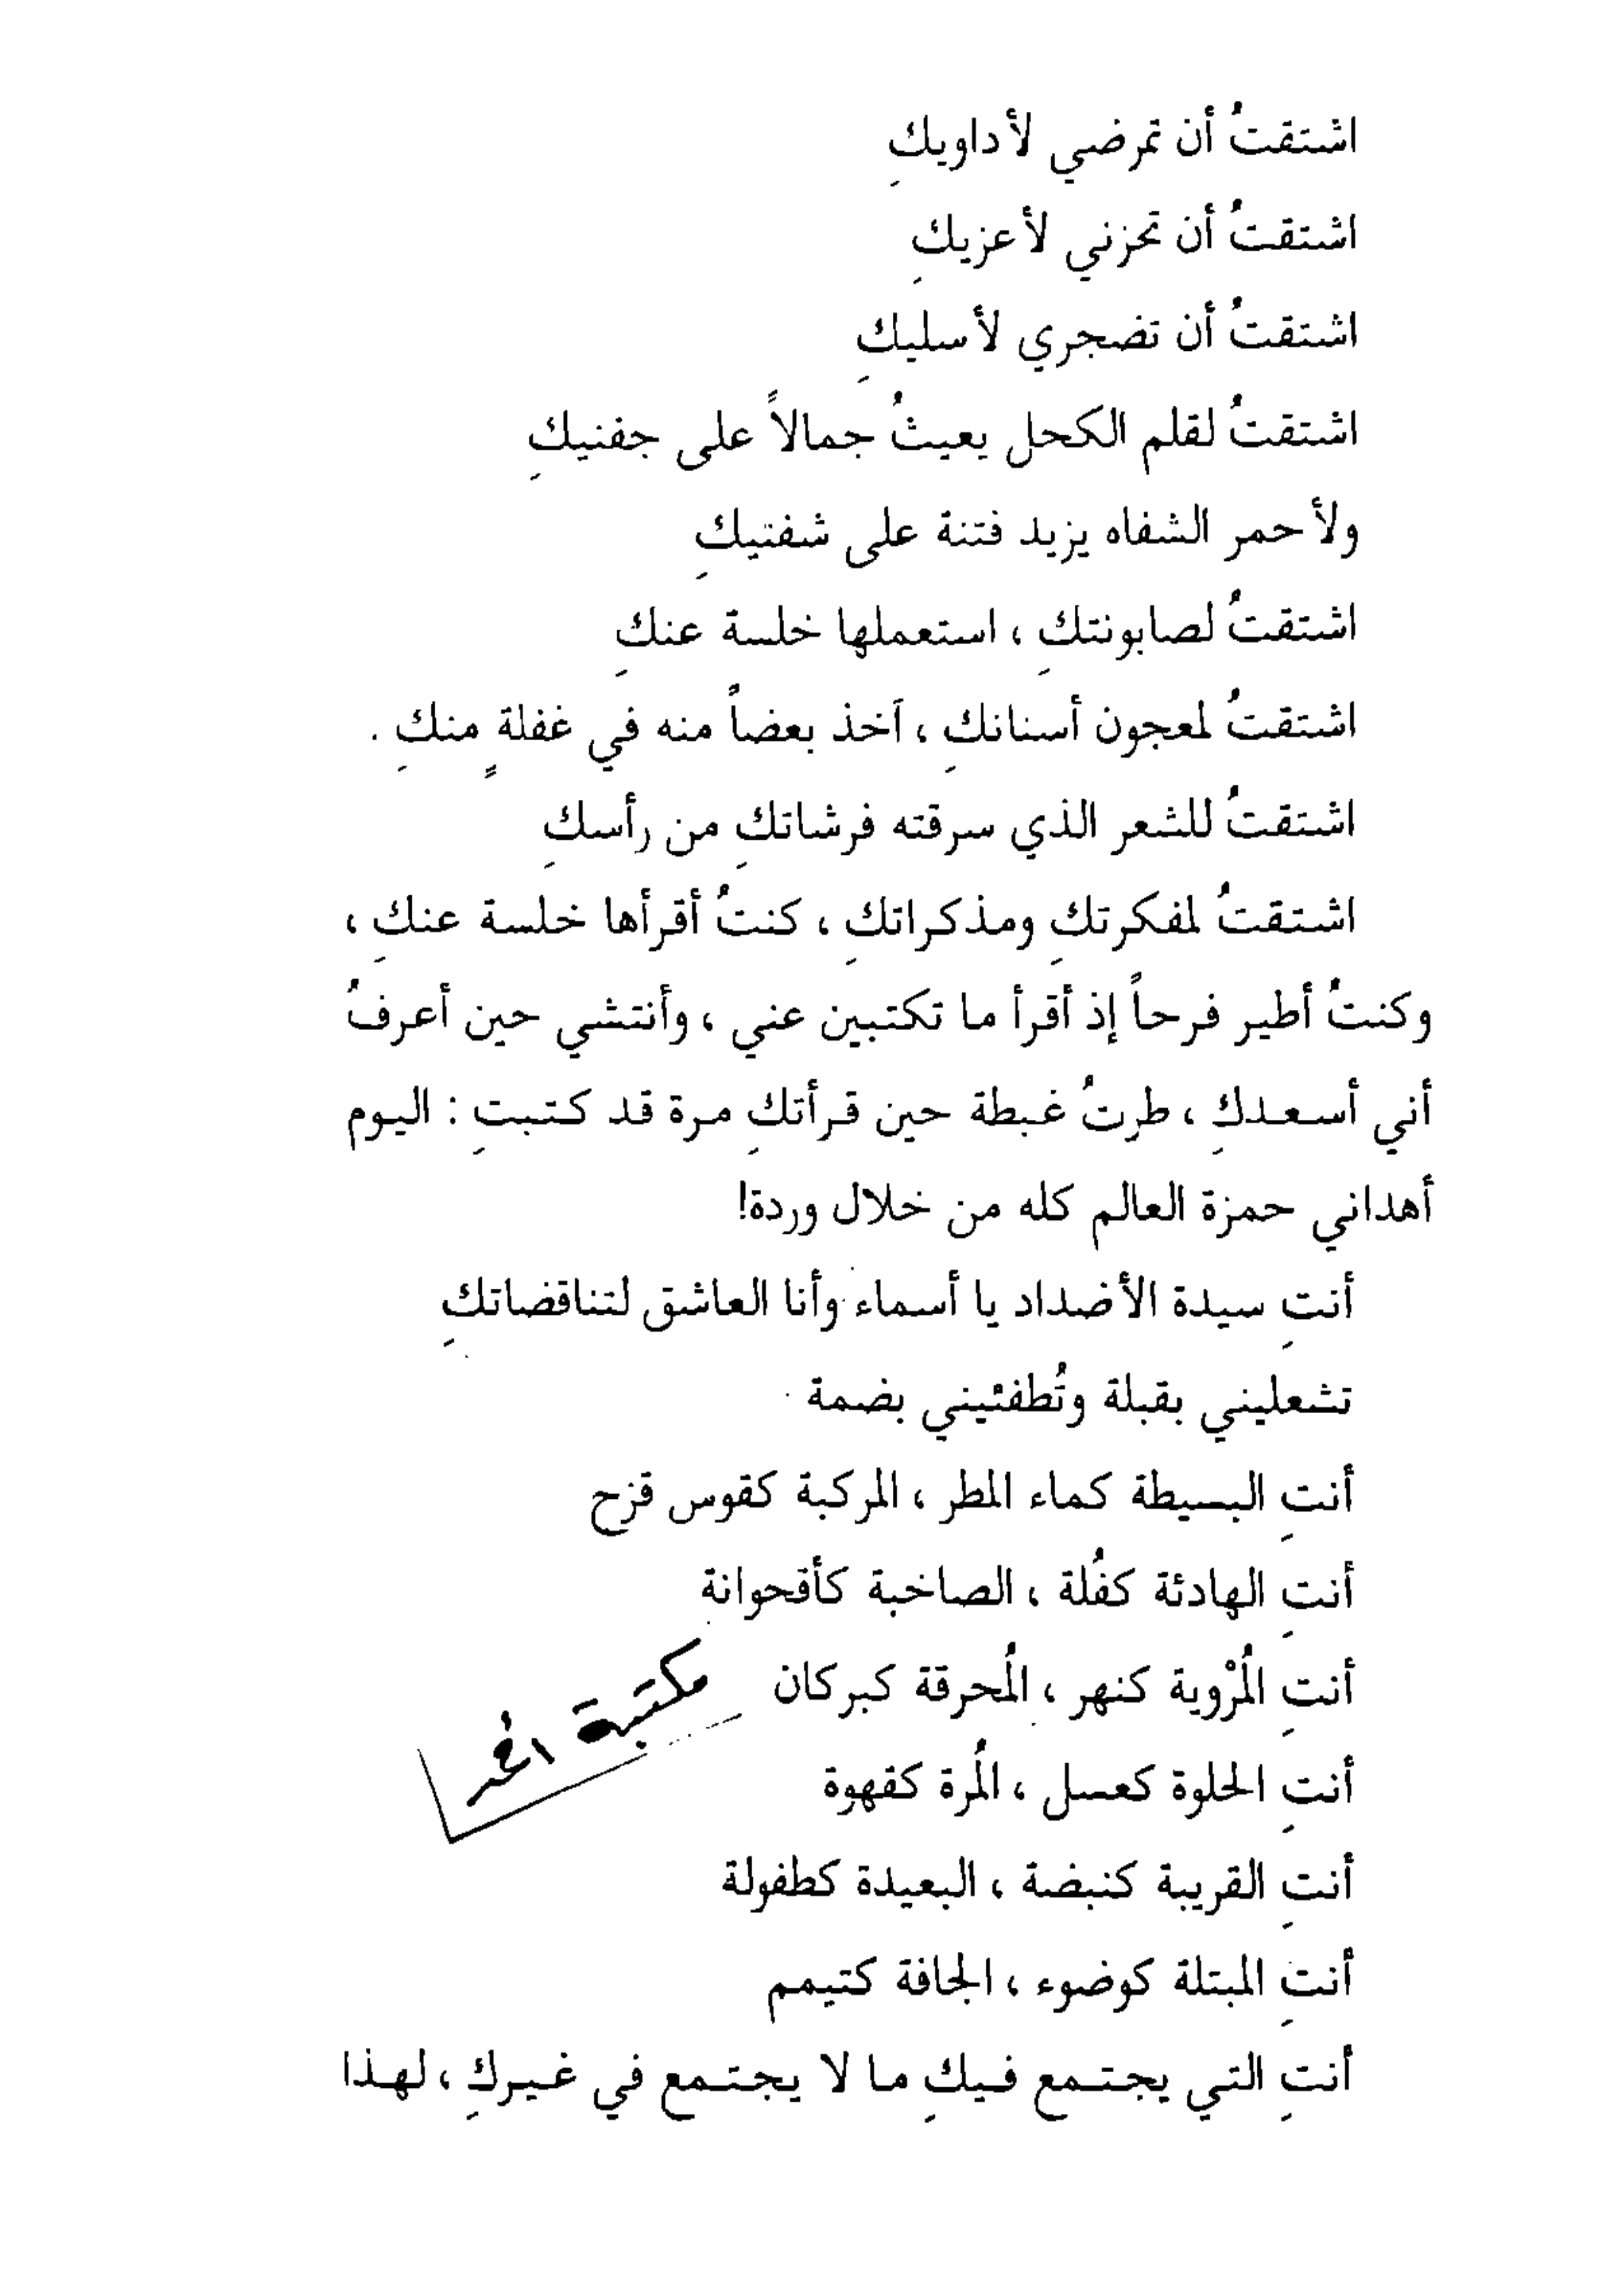 اشتقتُ أن تمرضي لأداويكِ
اشتقتُ أن تحزني لأعزيكِ
اشتقتُ أن تضجري لأسليكِ
اشتقتُ لقلم الكحل يعيثُ جمالاً على جفنيكِ
ولأحمر الشفاه يزيد فتنة على شفتيكِ
اشتقتُ لصابونتكِ ، استعملها خلسة عنكِ
اشتقتُ لمعجون أسنانكِ ، آخذ بعضاً منه في غفلةٍ منكِ .
اشتقتُ للشعر الذي سرقته فرشاتكِ من رأسكِ
اشتقتُ لمفكرتكِ ومذكراتكِ ، كنتُ أقرأها خلسة عنكِ ،
وكنتُ أطير فرحاً إذ أقرأ ما تكتبين عني ، وأنتشي حين أعرفُ
أني أسعدكِ ، طرتُ غبطة حين قرأتكِ مرة قد كتبتِ : اليوم
أهداني حمزة العالم كله من خلال وردة!
أنتِ سيدة الأضداد يا أسماء وأنا العاشق لتناقضاتكِ
تشعليني بقبلة وتُطفئيني بضمة
أنتِ البسيطة كماء المطر ، المركبة كقوس قزح
أنتِ الهادئة كفُلة ، الصاخبة كأقحوانة
أنتِ المُرْوية كنهر ، المُحرقة كبركان
مكتبة
أنتِ الحلوة كعسل ، المُرة كقهوة
أنتِ القريبة كنبضة ، البعيدة كطفولة
أنتِ المبتلة كوضوء ، الجافة كتيمم
أنتِ التي يجتمع فيكِ ما لا يجتمع في غيركِ ، لهذا